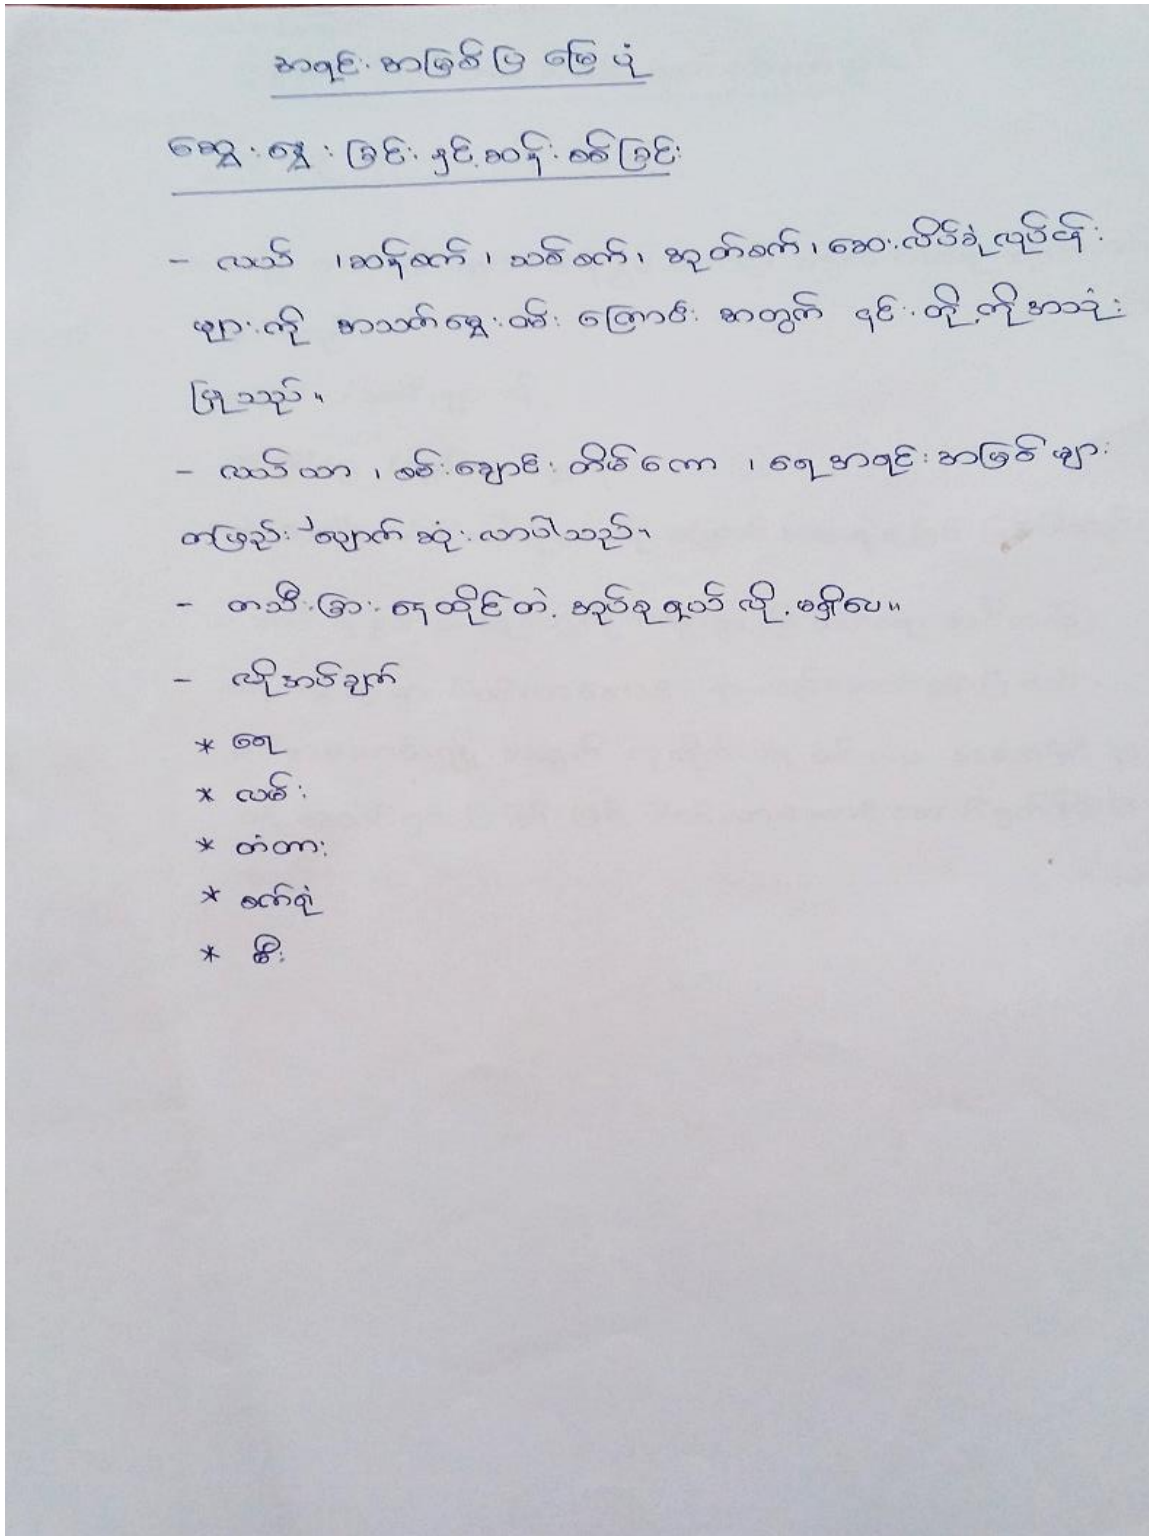 အရင်းအမြစ်ပြ မြေပုံ
ဆွေးနွေးခြင်းနှင့်ဆန်းစစ်ခြင်း
- လယ် ၊ဆန်စက်၊ သစ်စက်၊ အုတ်စက်၊ဆေးလိပ်ခုံလုပ်ငန်း
များကို အသက်မွေးဝမ်း ကြောင်း အတွက် ၎င်းတို့ကိုအသုံး
ပြုသည်။
- လယ်ယာ ၊ စမ်းချောင်းတိမ်ကော ၊ ရေအရင်းအမြစ်များ
တဖြည်းဖြည်းလျောက်ဆုံးလာပါသည်။
- တသီးခြားနေထိုင်တဲ့အုပ်စုရယ်လို့မရှိပေ။
- လိုအပ်ချက်
* ရေ
* လမ်း
* တံတား
* စက်ရုံ
* မီး